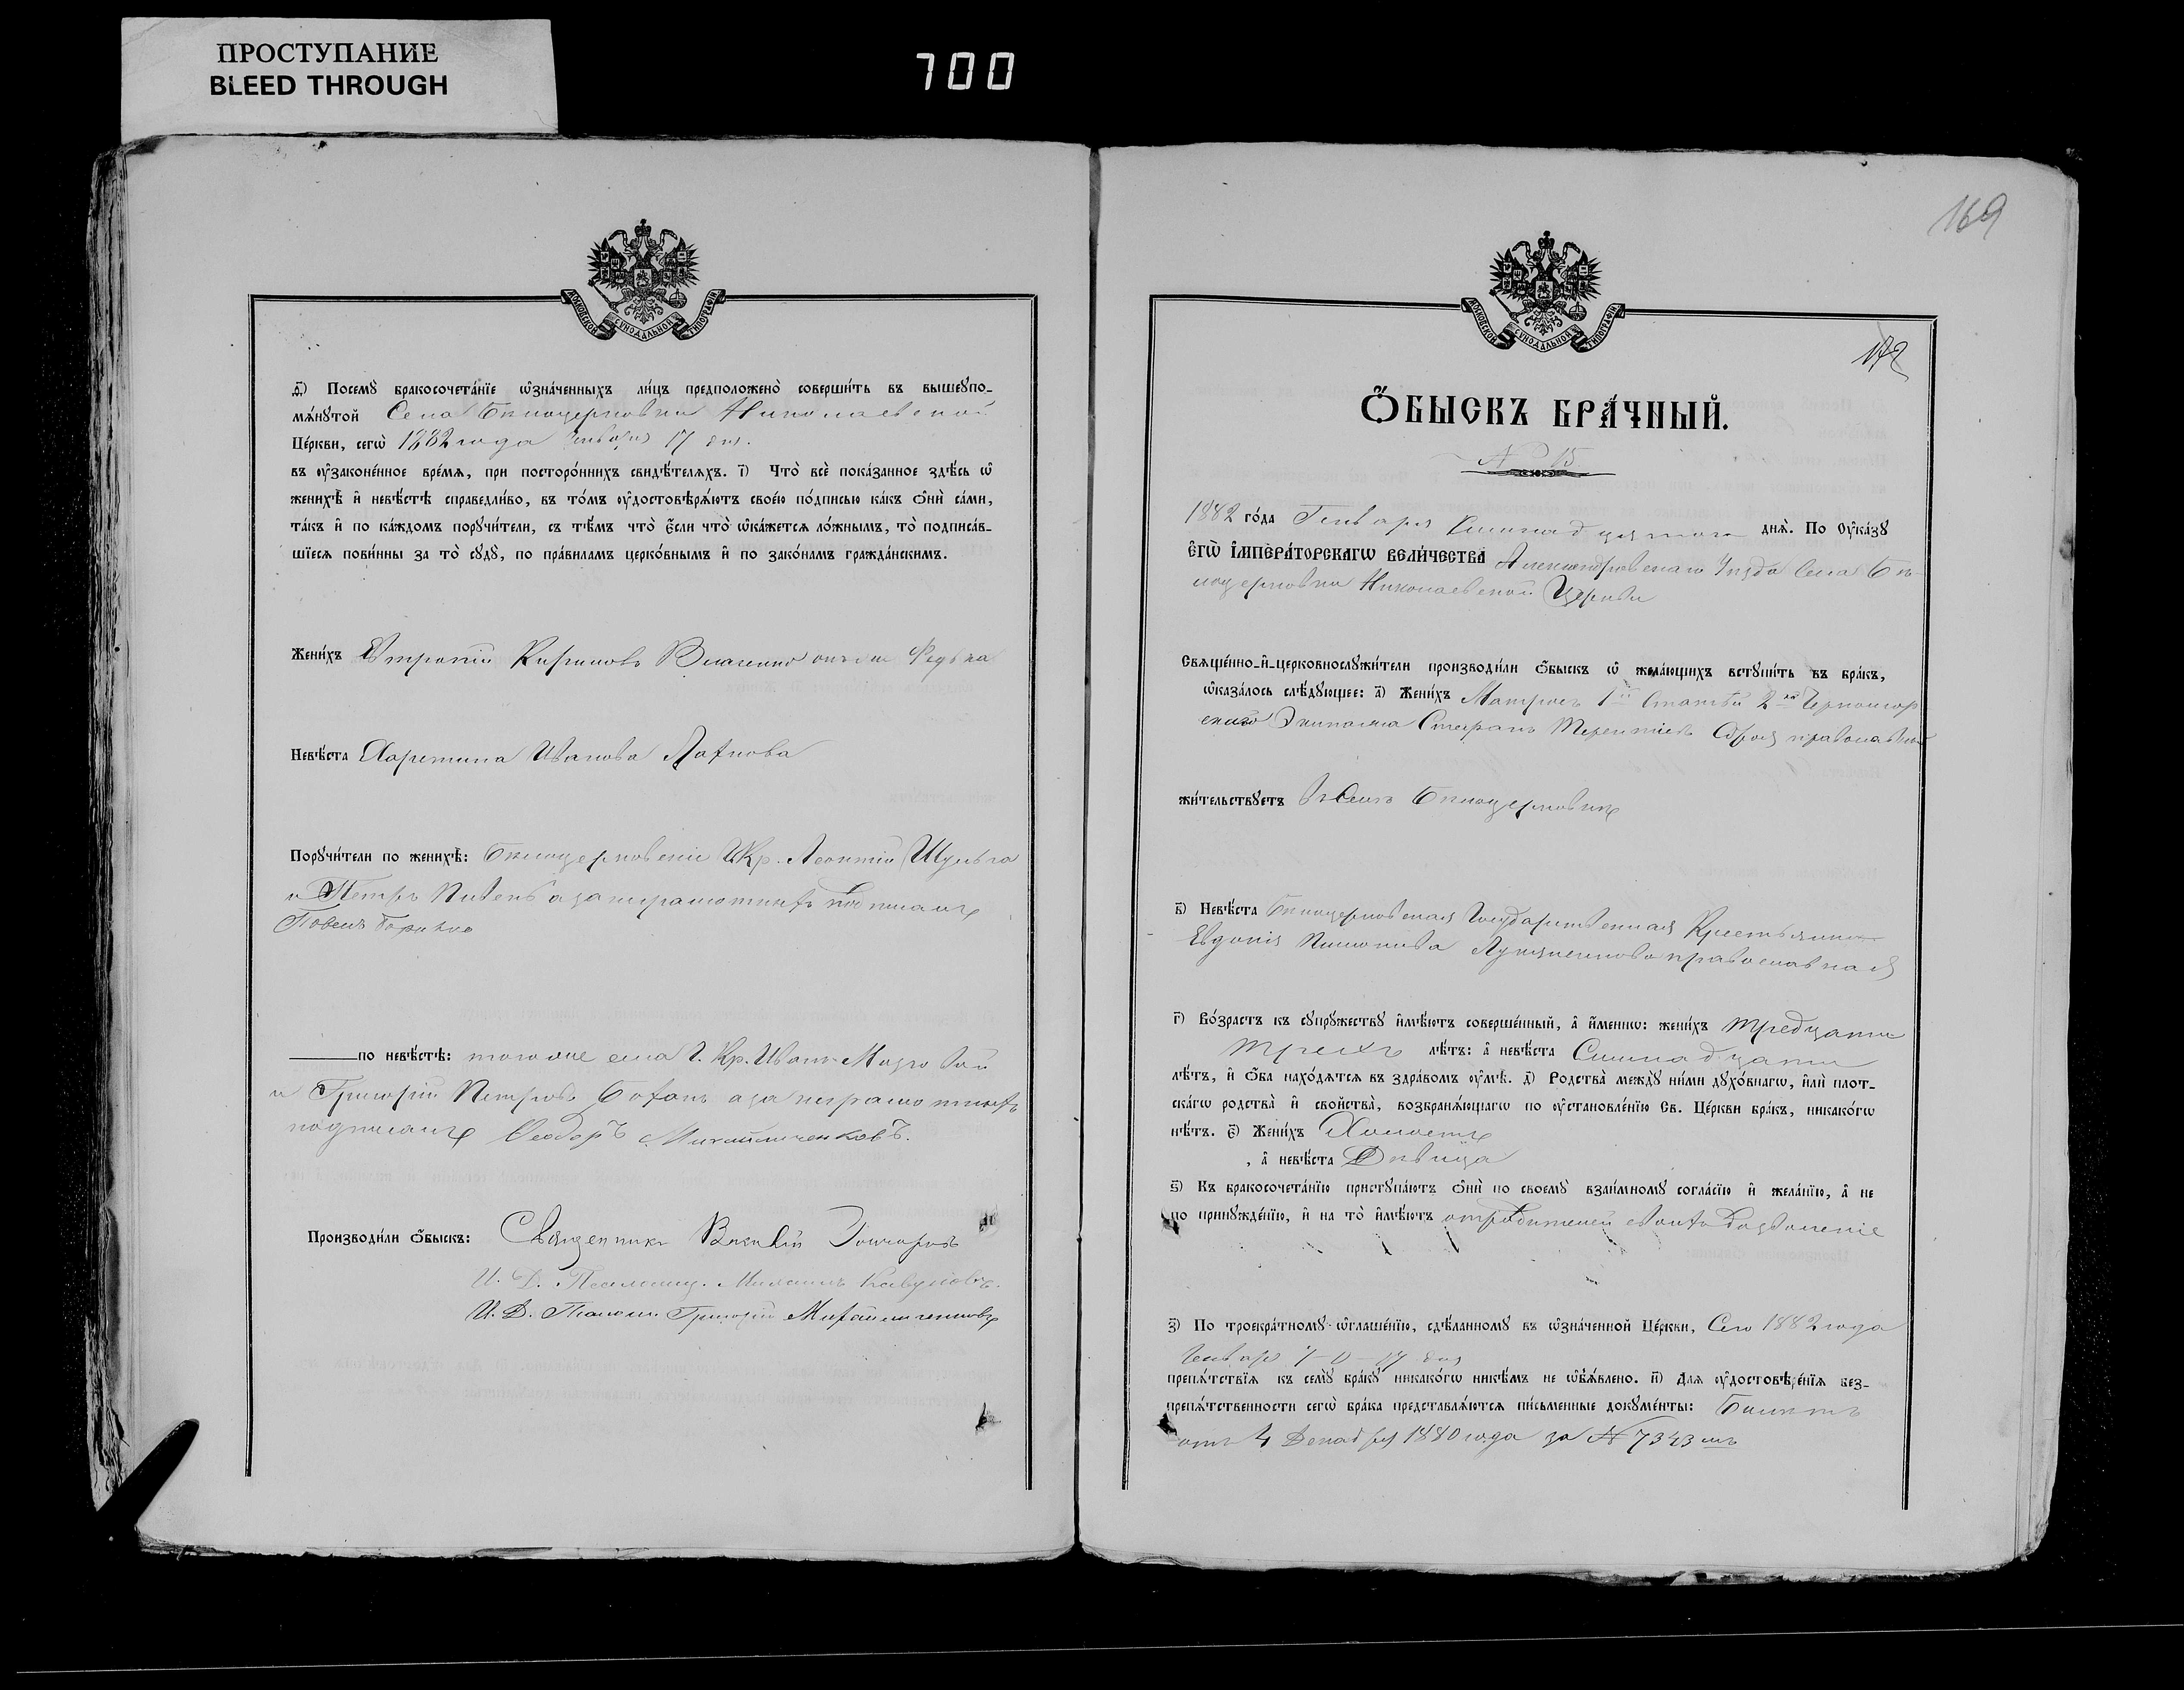 ПРОСТУПАНИЕ
BLEED THROUGH
700
МОСКОВСКОЙ СѴНОДАЛЬНОЙ ТИПОГРАФІИ
ѳ҃) Посемꙋ̀ бракосочета́нїе ѡ҆зна́ченныхъ ли́цъ предположено̀ соверши́ть въ вышеꙋпо-
мѧ́нꙋтой Села Бѣлоцерковки Николаевской
Це́ркви, сегѡ̀ 1882 года Генваря 17 дня.
въ ᲂу҆законе́нное вре́мѧ, при посторо́ннихъ свидѣ́телѧхъ. і҃) Что̀ всѐ пока́занное здѣ́сь ѡ҆
женихѣ̀ и҆ невѣ́стѣ справедли́во, въ то́мъ ᲂу҆достовѣрѧ́ютъ свое́ю по́дписью ка́къ ѻ҆нѝ са́ми,
та́къ и҆ по ка́ждомъ порꙋчи́тели, съ тѣ́мъ что̀ є҆́сли что̀ ѡ҆ка́жетсѧ ло́жнымъ, то̀ подписа́в-
шїесѧ пови́нны за то̀ сꙋдꙋ̀, по пра́виламъ церко́внымъ и҆ по зако́намъ гражда́нскимъ.
Жени́хъ Евтропій Кириловъ Власенко онъ же Редька
Невѣ́ста Харитина Иванова
Порꙋчи́тели по женихѣ̀: Бѣлоцерковскіе Г. Кр. Леонтій Шульга
и Петръ Пивень а за неграмотныхъ
по невѣ́стѣ: того же села Г. Кр. Иванъ
и Григорій Петровъ а за неграмотныхъ
подписался Ѳеодоръ Михайличенковъ.
Производи́ли ѻ҆́быскъ: Священникъ Василій Гончаровъ
И. Д. Псаломщ. Михаилъ
И. Д. Григорій Михайличенковъ
169
172
МОСКОВСКОЙ СѴНОДАЛЬНОЙ ТИПОГРАФІИ
Ѻ҆́БЫСКЪ БРА́ЧНЫЙ.
№ 15
1882 го́да Генваря Семнадцатого днѧ̀. По Оу҆ка́зꙋ
Є҆ГѠ̀ И҆МПЕРА́ТОРСКАГѠ ВЕЛИ́ЧЕСТВА Александровскаго Уѣзда Села Бѣ-
лоцерковки Николаевской Церкви
Свѧще́нно-и҆-церковнослꙋжи́тели производи́ли ѻ҆́быскъ ѡ҆ жела́ющихъ встꙋпи́ть въ бра́къ,
ѡ҆каза́лось слѣ́дꙋющее: а҃) Жени́хъ Матросъ 1й Статьи 2го Черномор
скаго Экипажа Стефанъ Терентіевъ православный
жи́тельствꙋетъ въ Селѣ Бѣлоцерковкѣ
в҃) Невѣ́ста Бѣлоцерковская Государственная Крестьянка
Евдокія православная
г҃) Во́зрастъ къ сꙋпрꙋ́жествꙋ и҆мѣ́ютъ соверше́нный, а҆ и҆́меннѡ: жени́хъ тридцати
трехъ лѣ́тъ: а҆ невѣ́ста Семнадцати
лѣ́тъ, и҆ ѻ҆́ба нахо́дѧтсѧ въ здра́вомъ ᲂу҆мѣ̀. д҃) Родства̀ междꙋ̀ ни́ми дꙋхо́внагѡ, и҆лѝ плот-
ска́гѡ родства̀ и҆ свойства̀, возбранѧ́ющагѡ по ᲂу҆становле́нїю Св. Це́ркви бра́къ, никако́гѡ
нѣ́тъ. є҃) Жени́хъ Холостъ
, а҆ невѣ́ста Дѣвица
ѕ҃) Къ бракосочета́нїю пристꙋпа́ютъ ѻ҆нѝ по своемꙋ̀ взаи́мномꙋ согла́сїю и҆ жела́нїю, а҆ не
по принꙋжде́нїю, и҆ на то̀ и҆мѣ́ютъ отъ родителей своихъ дозволеніе
з҃) По троекра́тномꙋ ѡ҆глаше́нїю, сдѣ́ланномꙋ въ ѡ҆зна́ченной Це́ркви, Сего 1882 года
Генваря
препѧ́тствїѧ къ семꙋ̀ бра́кꙋ никако́гѡ никѣ́мъ не ѡ҆б̾ѧ́влено. и҃) Длѧ ᲂу҆достовѣре́нїѧ без-
препѧ́тственности сегѡ̀ бра́ка представлѧ́ютсѧ пи́сьменные докꙋме́нты: Билетъ
отъ 4 Декабря 1880 года за № 7343 мъ